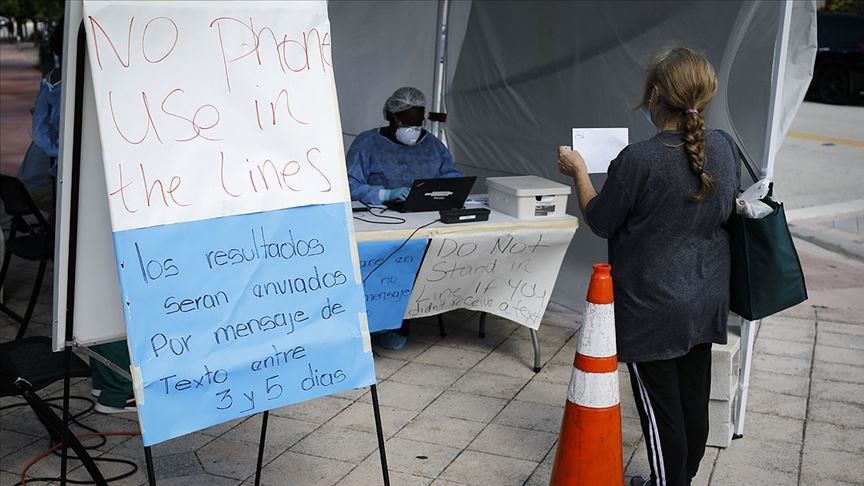 No Phone
Use in
the Lines
los resultados
seran enviados
Por mensaje de
Texto entre
3 y 5 dias
no
mensaje
texto
Do Not
Stand in
Line if you
didn't receive a text